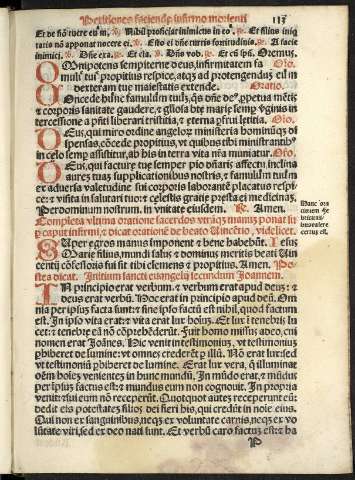 Petitiones faciende infirmo morienti 113
Et de syō tuere eū m. Nihil proficiat inimicus in eo. Et filius iniq̄
tatis nō apponat nocere ei. Esto ei dñe turris fortitudinis. A facie
inimici. Dñe exa. Et cla. Dñs vob. Et cū spū. Oremus.
OMnipotens sempiterne deus, infirmitatem fa Oro.
muli tui propitius respice, atqs ad protengendū eū in
dexteram tue maiestatis extende. Oratio.
COncede hūc famulum tuū, qs dñe de⁹, ppetua mētis
⁊ corporis sanitate gaudere, ⁊ gl'iosa bte marie semp virginis in
tercessione a pñti liberari tristitia, ⁊ eterna pfrui letitia. Oro.
DEus, qui miro ordine angelorum ministeria hominūqs di
spensas, cōcede propitius, vt quibus tibi ministrantib⁹
in celo semp assistitur, ab his in terra vita nr̄a muniatur. Oro.
DEus, qui facture tue semper pio dn̄aris affectu inclina
aurez tuaz supplicationibus nostris, ⁊ famulum tuum
ex aduersa valetudine sui corporis laborantē placatus respi
ce: ⁊ visita in salutari tuo: ⁊ celestis gratie presta ei medicinaz.
Per dominum nostrum. in vnitate eiusdem. R. Amen.
Completa vltima oratione sacerdos vtraqz manus ponat su
p caput infirmi, ⁊ dicat orationē de beato Vincētio, videlicet.
SUper egros manus imponent ⁊ bene habebūt. Iesus
Marie filius, mundi salus, ⁊ dominus meritis beati Uin
centij cōfessoris sui sit tibi clemens ⁊ propitius. Amen. Po
stea dicat. Initium sancti euangelij secundum Joannem.
IN principio erat verbum. ⁊ verbum erat apud deum: ⁊
deus erat verbū. Hoc erat in principio apud deū. Om
nia per ipsuz facta sunt: ⁊ sine ipso factū est nihil, quod factum
est. In ipso vita erat: ⁊ vita erat lux hoīuz. Et lux ī tenebris lu
cet: ⁊ tenebre eā nō cōphēderūt. Fuit homo missus a deo, cui
nomen erat Joānes. Hic venit in testimoniuz, vt testimoniuz
phiberet de lumine: vt omnes crederēt p illū. Nō erat lux: sed
vt testimoniū phiberet de lumine. Erat lux vera, q̄ illuminat
oēm hoīez venientez in hunc mundū. In mūdo erat, ⁊ mūdus
per ipsuz factus est: ⁊ mundus eum non cognouit. In propria
venit: ⁊ sui eum nō receperūt. Quotquot autez receperunt eū:
dedit eis potestatez filios dei fieri his, qui credūt in noīe eius.
Qui non ex sanguinibus, neqz ex voluntate carnis, neqz ex vo
lūtate viri, sed ex deo nati sunt. Et verbū caro factuz est: ⁊ ha
P